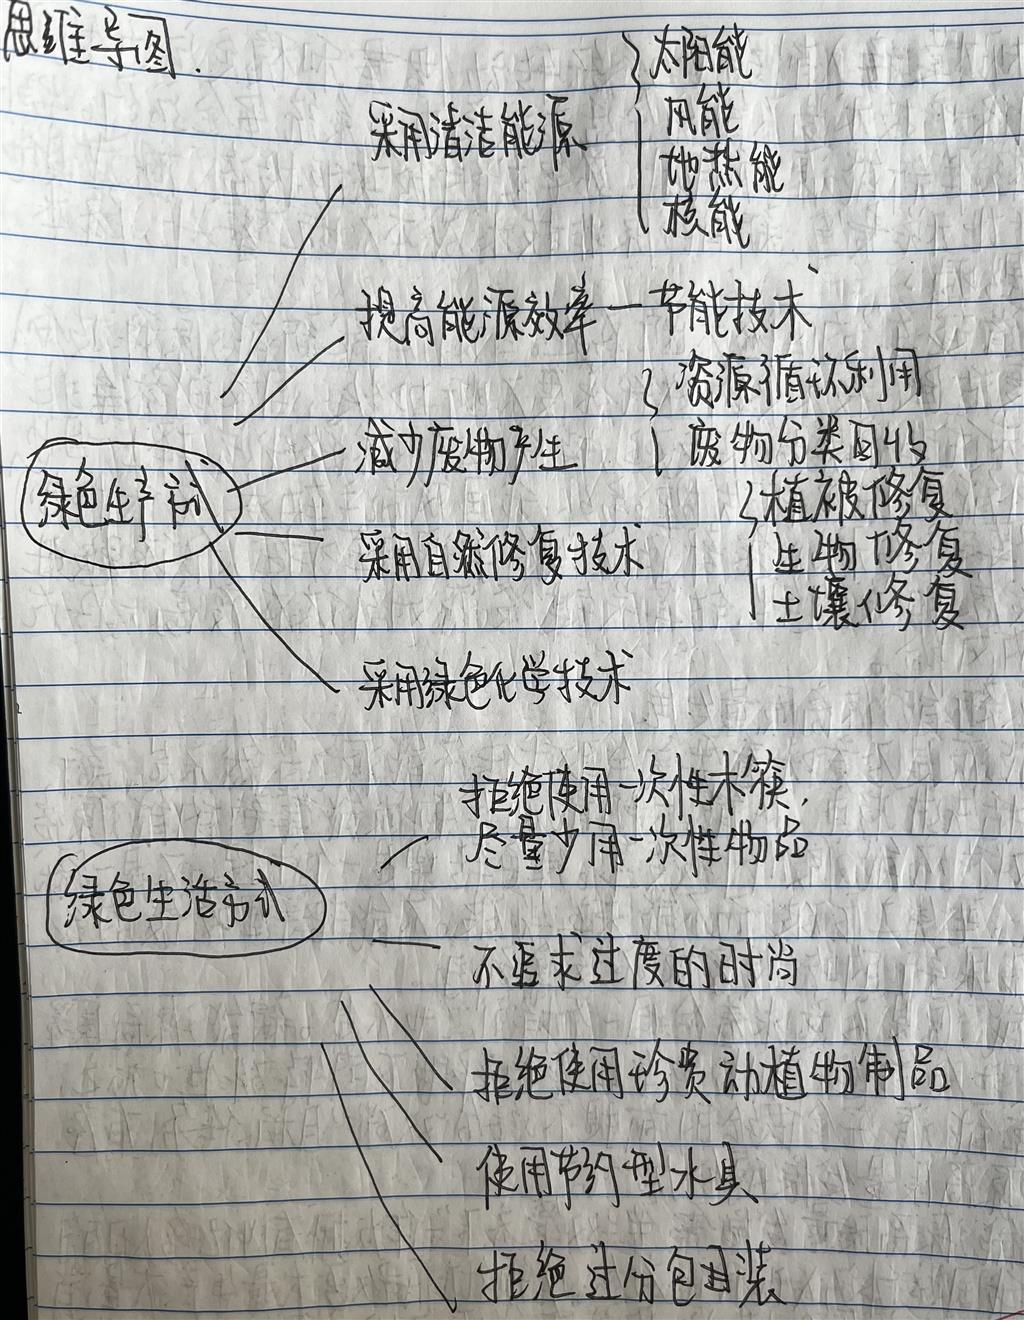 思维导图.
太阳能
采用清洁能源
风能
地热能
核能
提高能源效率—节能技术
资源循环利用
减少废物产生
废物分类回收
植被修复
绿色生产方式
采用自然修复技术
生物修复
土壤修复
采用绿色化学技术
拒绝使用一次性木筷,
尽量少用一次性物品
绿色生活方式
不追求过度的时尚
拒绝使用珍贵动植物制品
使用节约型水具
拒绝过分包装